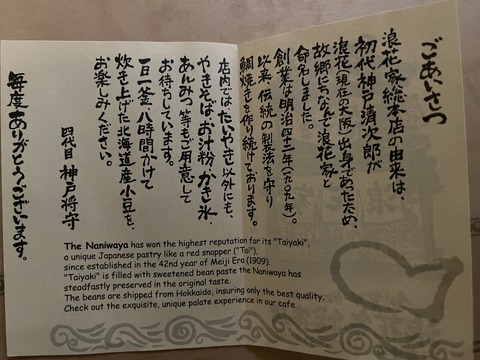 ごあいさつ
浪花家総本店の由来は、
初代神戸清次郎が
浪花(現在の大阪)出身であったため、
故郷にちなんで浪花家と
命名しました。
創業は明治四十二年(一九〇九年)。
以来、伝統の製法を守り
鯛焼きを作り続けております。
店内では、たいやき以外にも、
やきそば、お汁粉、かき氷、
あんみつ等もご用意して
お待ちしています。
一日一釜、八時間かけて
炊き上げた北海道産小豆を、
お楽しみください。
四代目 神戸将守
毎度ありがとうございます。
The Naniwaya has won the highest reputation for its "Taiyaki",
a unique Japanese pastry like a red snapper ("Tai").
since established in the 42nd year of Meiji Era (1909).
"Taiyaki" is filled with sweetened bean paste the Naniwaya has
steadfastly preserved in the original taste.
The beans are shipped from Hokkaido, insuring only the best quality.
Check out the exquisite, unique palate experience in our cafe.